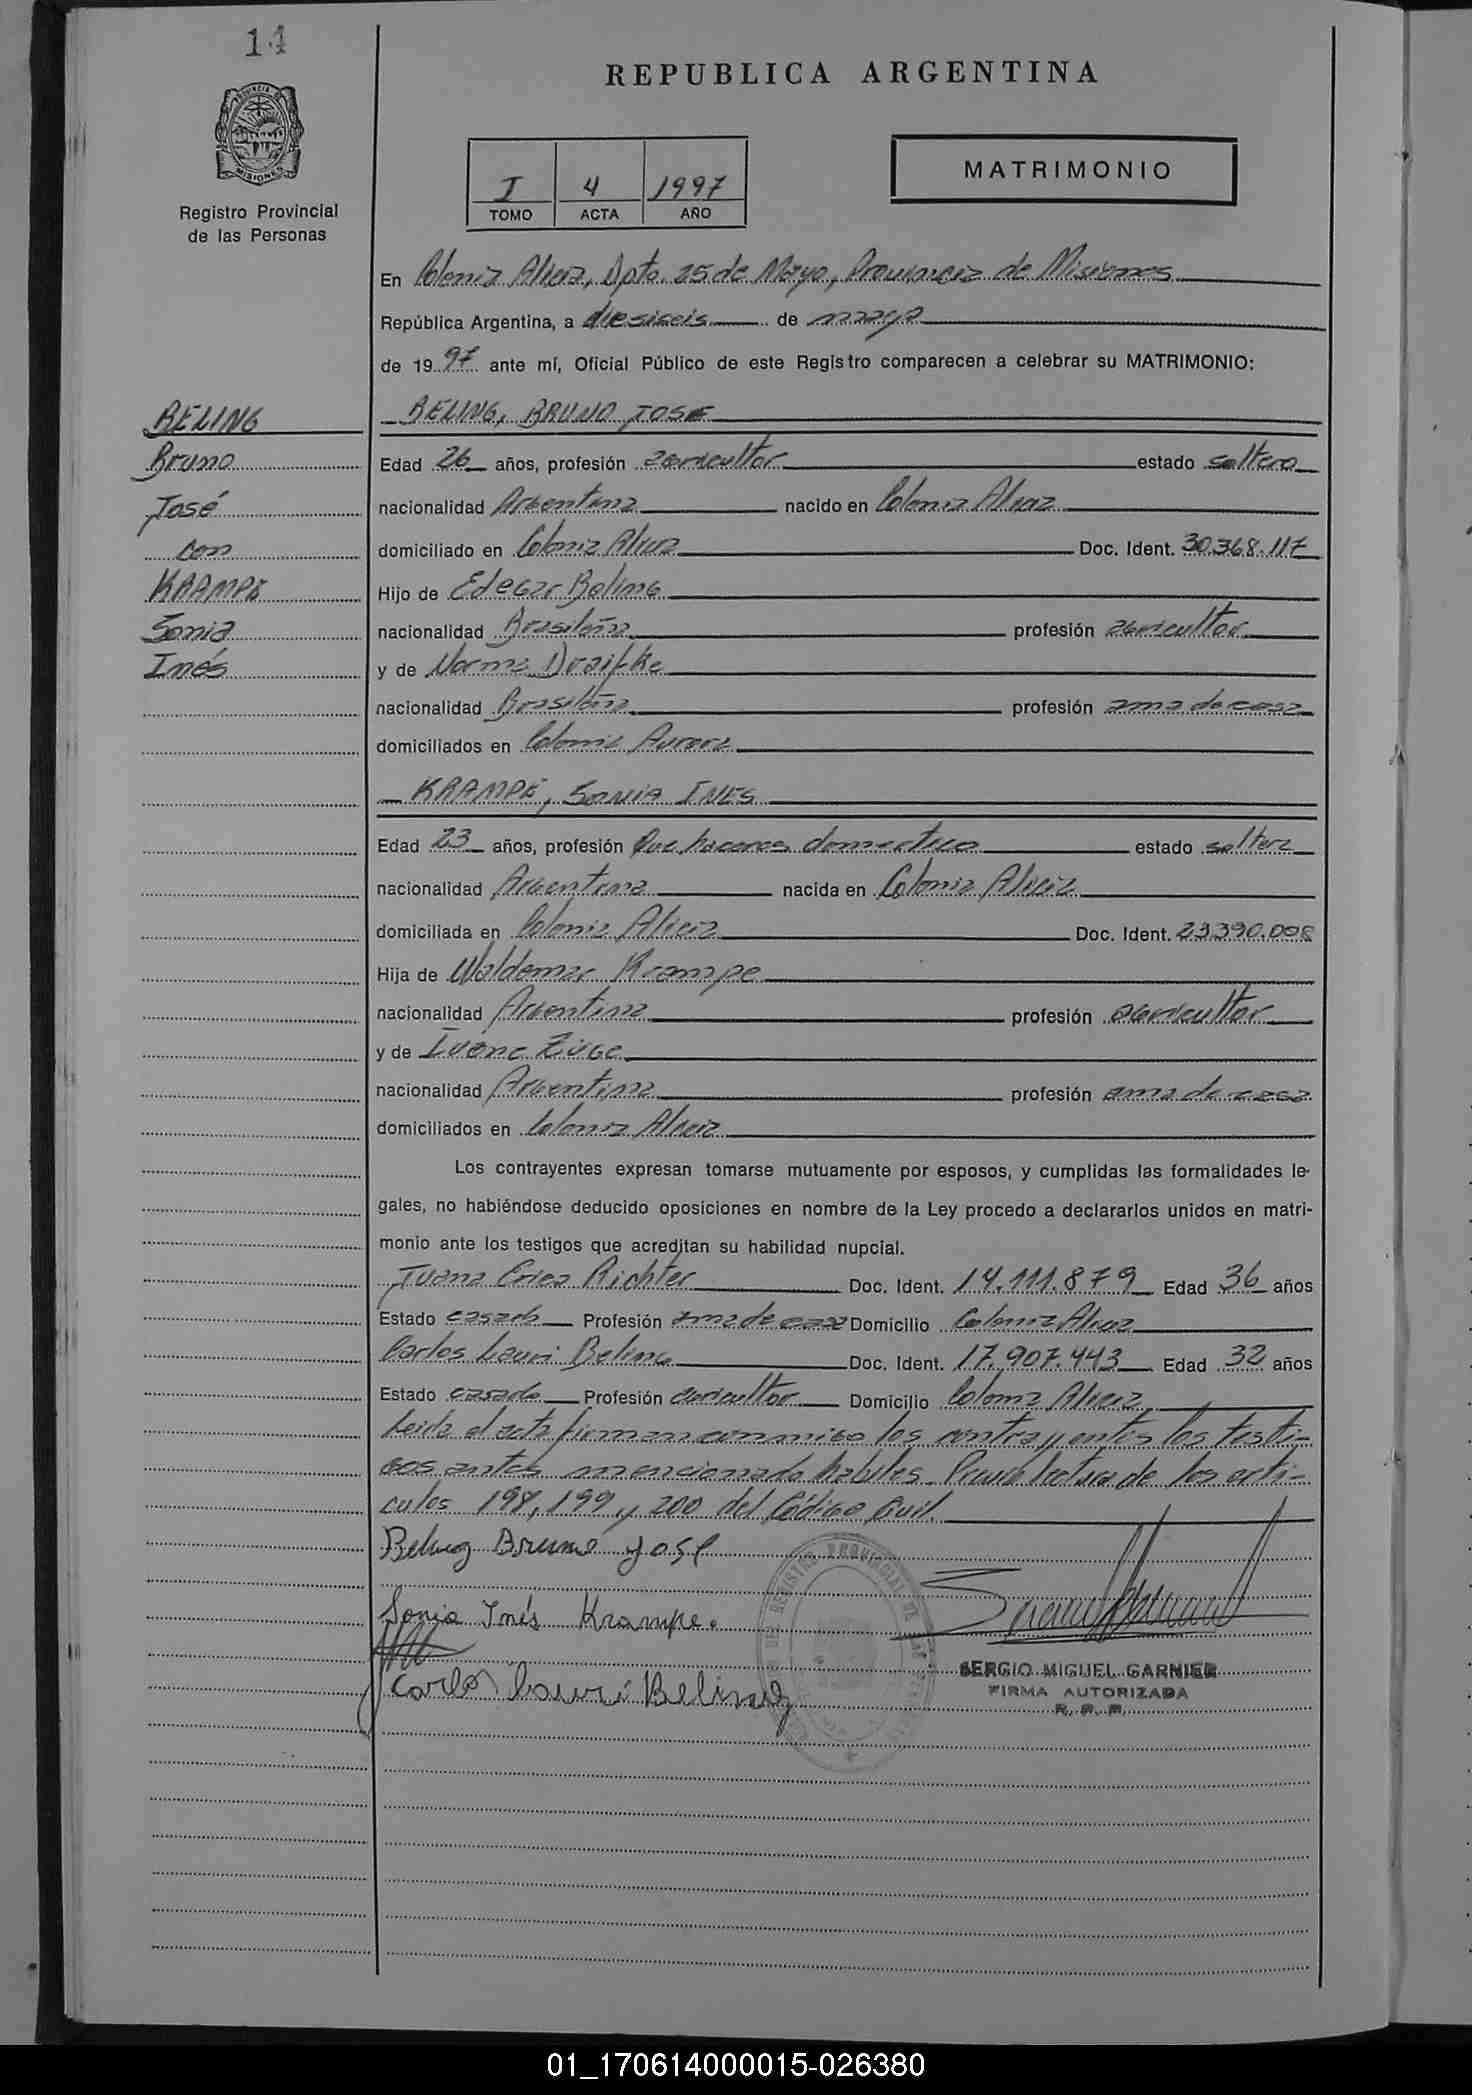 14
REPUBLICA ARGENTINA
MATRIMONIO
I 4 1997
TOMO ACTA AÑO
PROVINCIA DE
MISIONES
Registro Provincial
de las Personas
En Colonia Alicia, Dpto. 25 de Mayo, Provincia de Misiones
República Argentina, a dieciseis de mayo
de 1997 ante mí, Oficial Público de este Registro comparecen a celebrar su MATRIMONIO:
BELING
Bruno
José
con
KRAMPE
Sonia
Inés
BELING, BRUNO JOSE
Edad 26 años, profesión agricultor estado soltero
nacionalidad Argentina nacido en Colonia Alicia
domiciliado en Colonia Alicia Doc. Ident. 30.368.117
Hijo de Edegar Beling
nacionalidad Brasileña profesión agricultor
y de Norma
nacionalidad Brasileña profesión ama de casa
domiciliados en Colonia Aurora
KRAMPE, SONIA INES
Edad 23 años, profesión Que haceres domestico estado soltera
nacionalidad Argentina nacida en Colonia Alicia
domiciliada en Colonia Alicia Doc. Ident. 23.390.008
Hija de Waldemar Krampe
nacionalidad Argentina profesión agricultor
y de Ivone Zuge
nacionalidad Argentina profesión ama de casa
domiciliados en Colonia Alicia
Los contrayentes expresan tomarse mutuamente por esposos, y cumplidas las formalidades le-
gales, no habiéndose deducido oposiciones en nombre de la Ley procedo a declararlos unidos en matri-
monio ante los testigos que acreditan su habilidad nupcial.
Juana Erica Richter Doc. Ident. 14.111.879 Edad 36 años
Estado casada Profesión ama de casa Domicilio Colonia Alicia
Carlos Lauri Beling Doc. Ident. 17.907.443 Edad 32 años
Estado casado Profesión agricultor Domicilio Colonia Alicia
Leida el acta firman conmigo los contrayentes los testi-
gos antes mencionado habiles. Previa lectura de los arti-
culos 198, 199 y 200 del Código Civil.
Beling Bruno Jose
Sonia Inés Krampe.
Carlos Lauri Beling
SERGIO MIGUEL GARNIER
FIRMA AUTORIZADA
R. P. P.
01_170614000015-026380